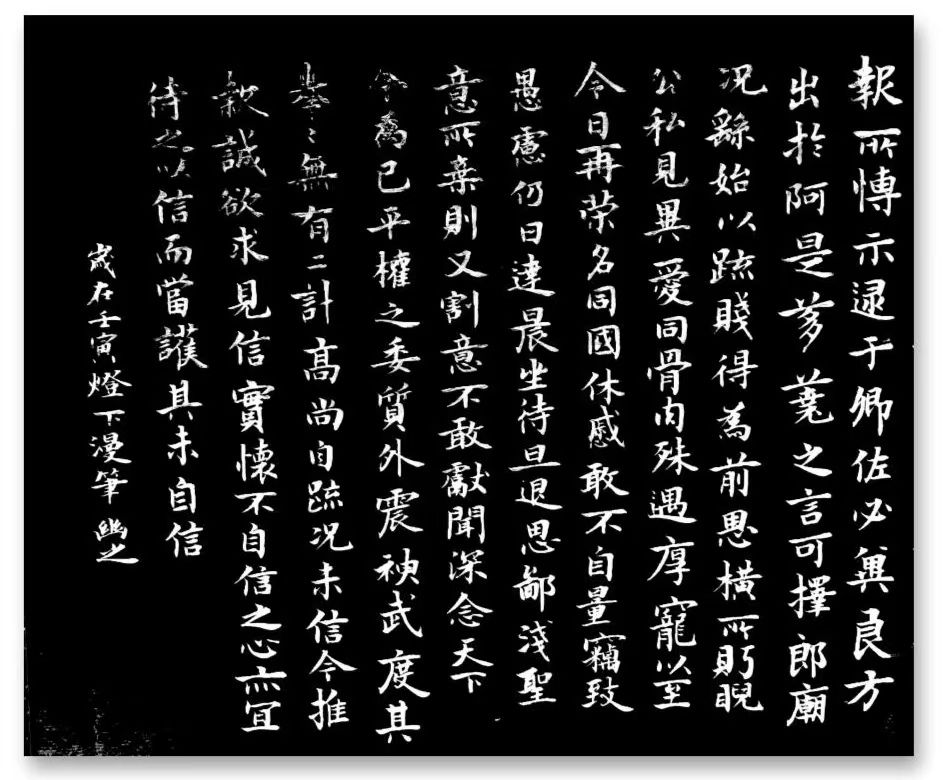 報所慱示逮于卿佐必冀良方
出於阿是芻蕘之言可擇郎廟
况繇始以疏賤得為前恩橫所眄睨
公私見異愛同骨肉殊遇厚寵以至
今日再榮名同國休慼敢不自量竊致
愚慮仍日達晨坐待旦退思鄙淺聖
意所棄則又割意不敢獻聞深念天下
今為已平權之委質外震神武度其
拳〻無有二計高尚自疏况未信今推
款誠欲求見信實懷不自信之心亦宜
待之以信而當護其未自信
歲在壬寅燈下漫筆幽之